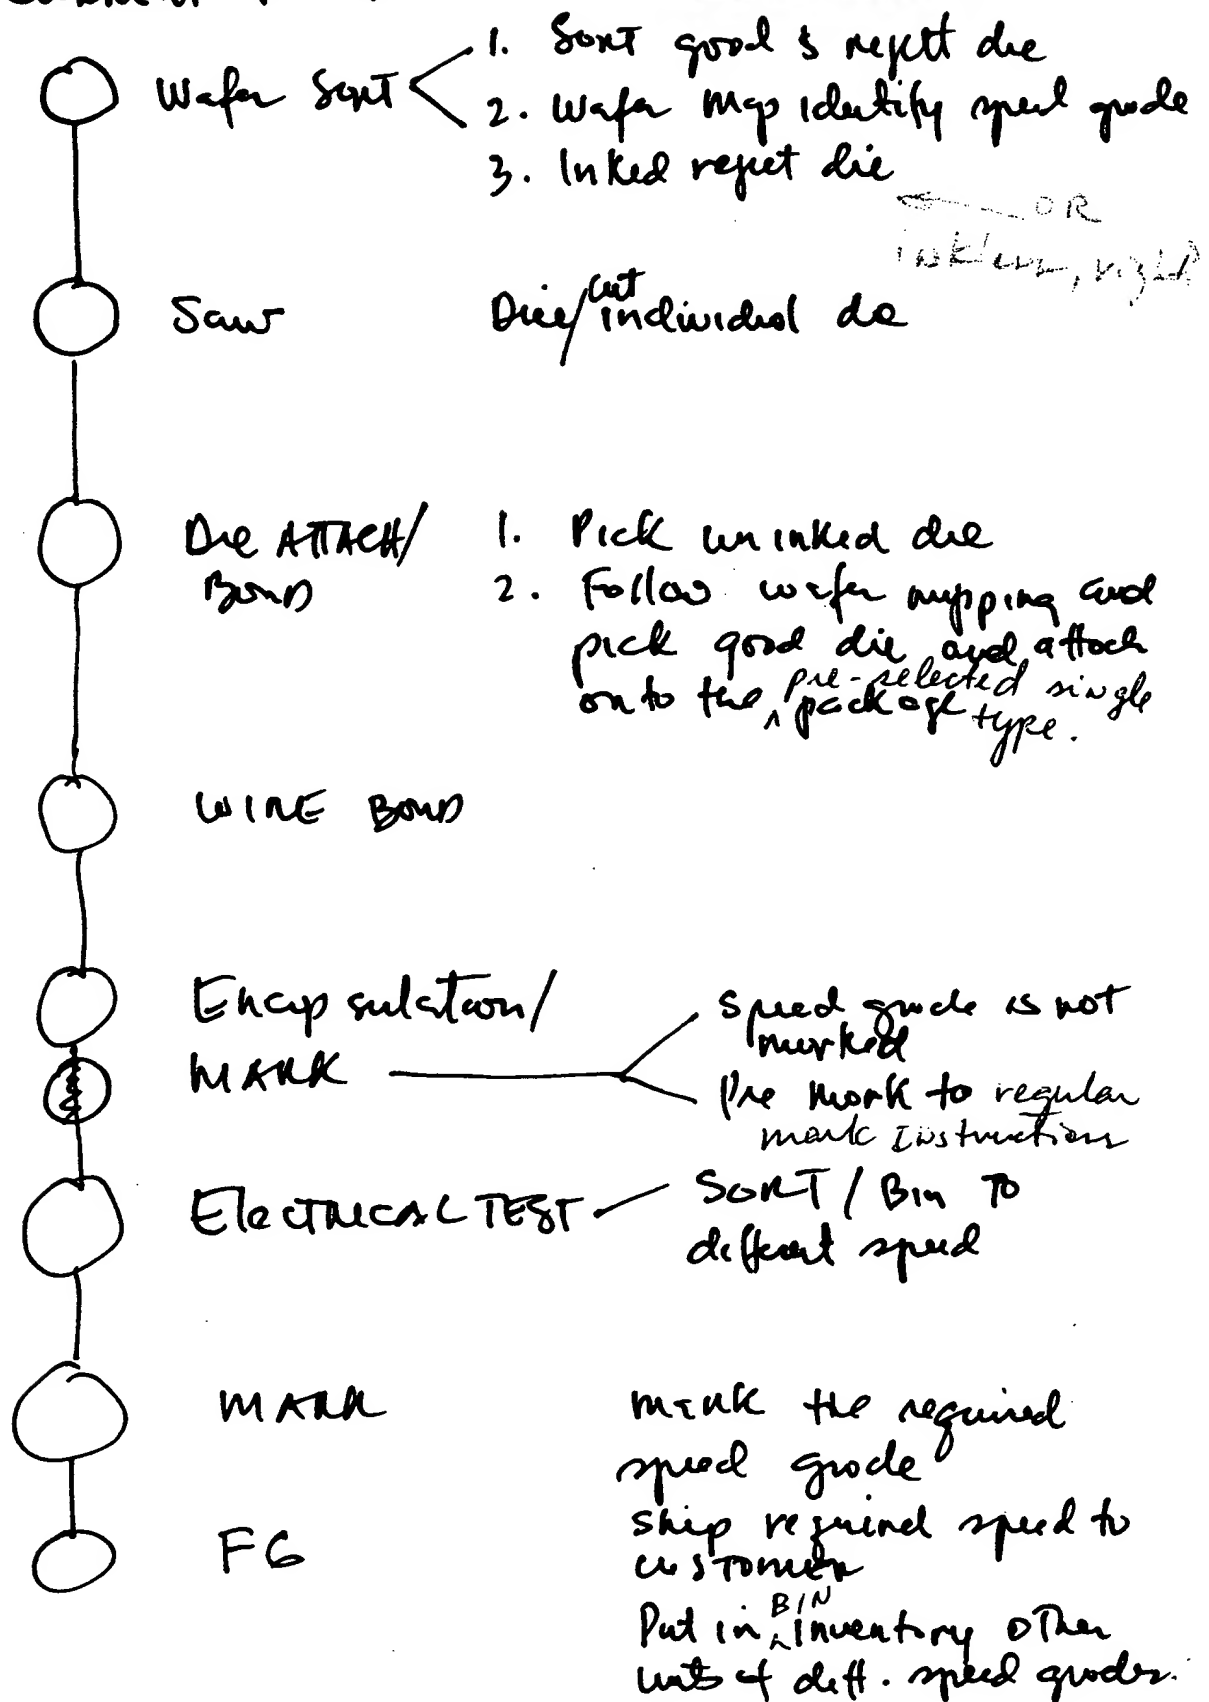 Wafer Sort
1. Sort good & reject die
2. Wafer map identify speed grade
3. Inked reject die
OR
inkless, right?
Saw
Dice/cut individual die
Die ATTACH/
BOND
1. Pick uninked die
2. Follow wafer mapping and
pick good die and attach
onto the pre-selected single
package type.
WIRE BOND
Encapsulation/
MARK
speed grade is not
marked
Pre mark to regular
mark Instruction
ELECTRICAL TEST
SORT / Bin TO
different speed
MARK
MARK the required
speed grade
FG
Ship required speed to
CUSTOMER
Put in BIN inventory other
units of diff. speed grades.